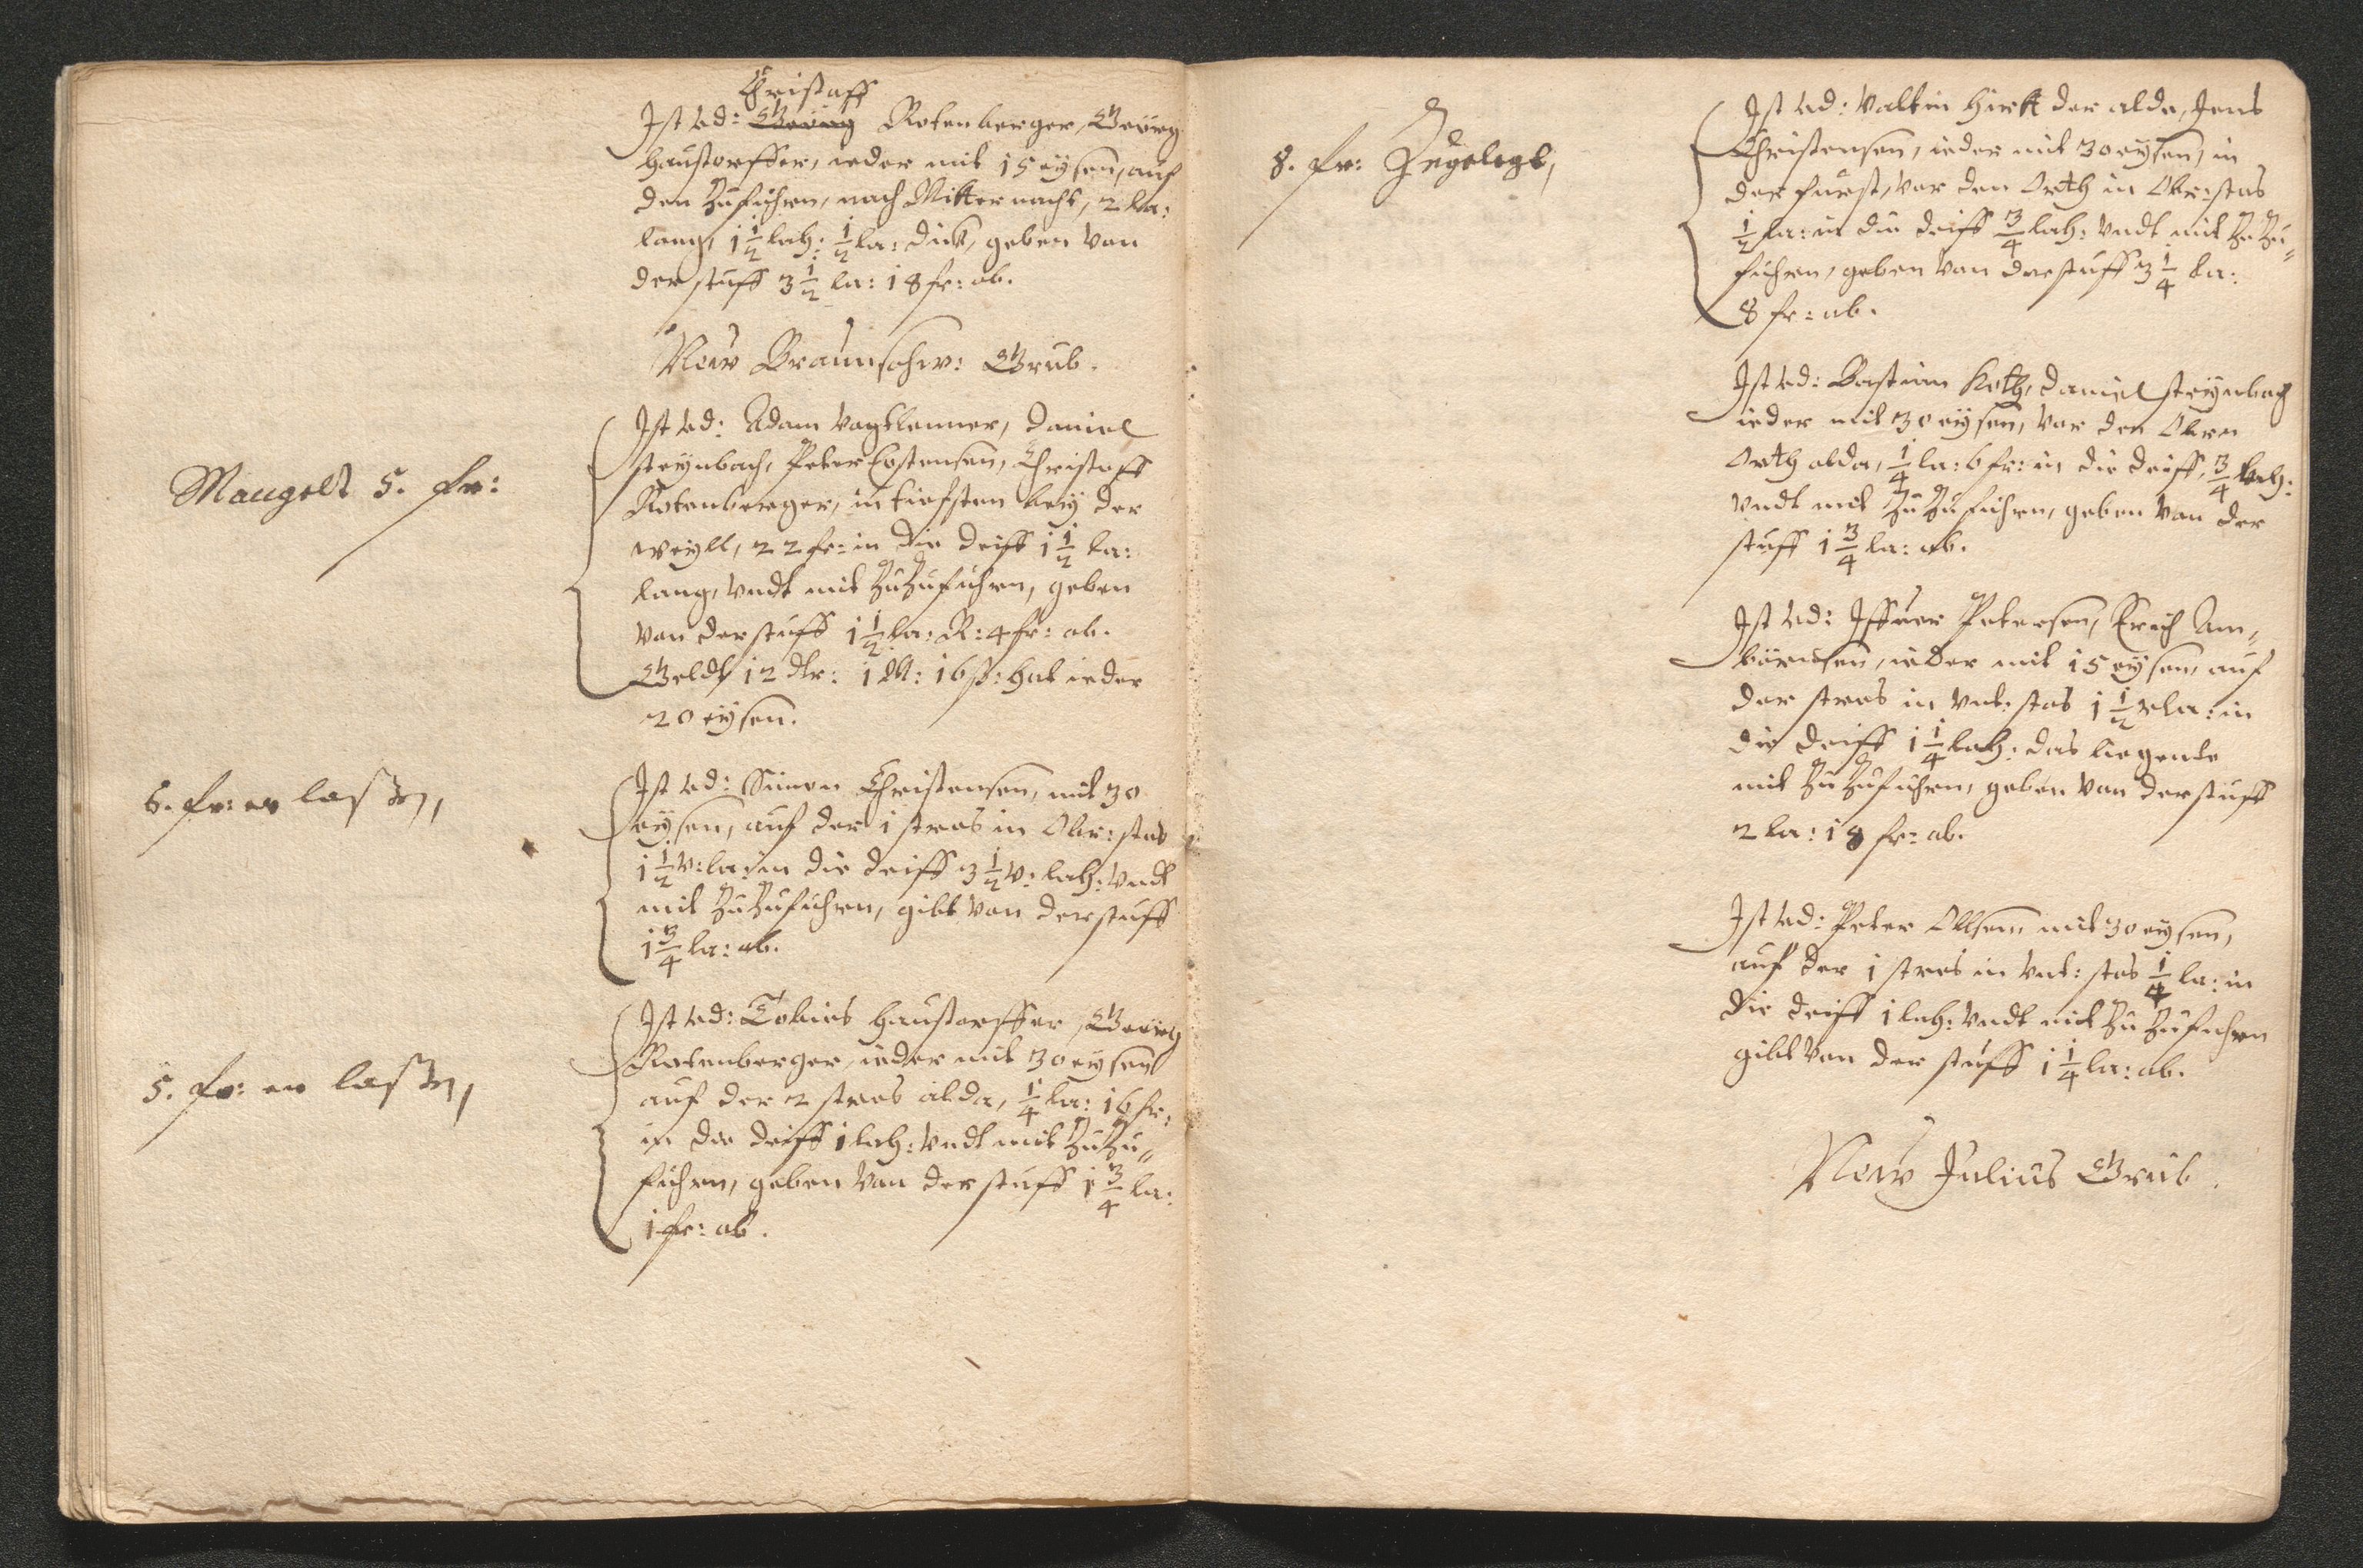 Christaff
Ist Ad: Georg Rotenberger, Georg
Haustorffer, ieder mit 15 eysen, auf
den Zufuhren, nach Mitternacht, 2 la:
lang, 1 1/2 lah: 1/2 la: dick, geben von
der stuff 3 1/2 la: 18 fr: ab.
New Braunschw: Grub.
Mangelt 5. fr:
Ist Ad: Adam Vogtlenner, Daniel
Steynbach, Peter Costensen, Christaff
Rotenberger, in tiefsten bey der
weyll, 22 fr: in die deiff 1 1/2 la:
lang, vndt mit Zu Zufuhren, geben
von der stuff 1 1/2 la: R: 4 fr: ab.
Geldt 12 dlr: 1 M: 16 ß: hat ieder
20 eysen.
6. fr: er laßen,
Ist Ad: Simon Christensen, mit 30
eysen, auf der 1 stras in Obr: stas
1 1/2 v: la: in die deiff 3 1/2 v: lah: vndt
mit Zu Zufuhren, gibt von der stuff
1 3/4 la: ab.
5. fr: er laßen,
Ist Ad: Tobias Haustorffer, Georg
Rotenberger, ieder mit 30 eysen
auf der 2 stras alda, 1/4 la: 16 fr:
in die deiff 1 lah: vndt mit Zu Zu„
fuhren, geben von der stuff 1 3/4 la:
1 fr: ab.
8. fr: Zugelegt,
Ist Ad: Valtin Hirtt der alde, Jens
Christensen, ieder mit 30 eysen, in
der furst, vor den Orth in Obr: stas
1/2 la: in die deiff 3/4 lah: vndt mit Zu Zu„
fuhren, geben von der stuff 3 1/4 la:
8 fr: ab.
Ist Ad: Bastian Koth, Daniel Steynbach
ieder mit 30 eysen, vor den Obrn
Orth alda, 1/4 la: 6 fr: in die deiff, 3/4 lah:
vndt mit Zu Zufuhren, geben von der
stuff 1 3/4 la: ab.
Ist Ad: Iffuer Petersen, Erich Am„
börnsen, ieder mit 15 eysen, auf
der stras in vnt: stas 1 1/2 la: in
die deiff 1 1/4 lah: das liegente
mit Zu Zufuhren, geben von der stuff
2 la: 18 fr: ab.
Ist Ad: Peter Ollsen, mit 30 eysen,
auf der 1 stras in vnt: stas 1/4 la: in
die deiff 1 lah: vndt mit Zu Zufuhren
gibt von der stuff 1 1/4 la: ab.
New Julius Grub.